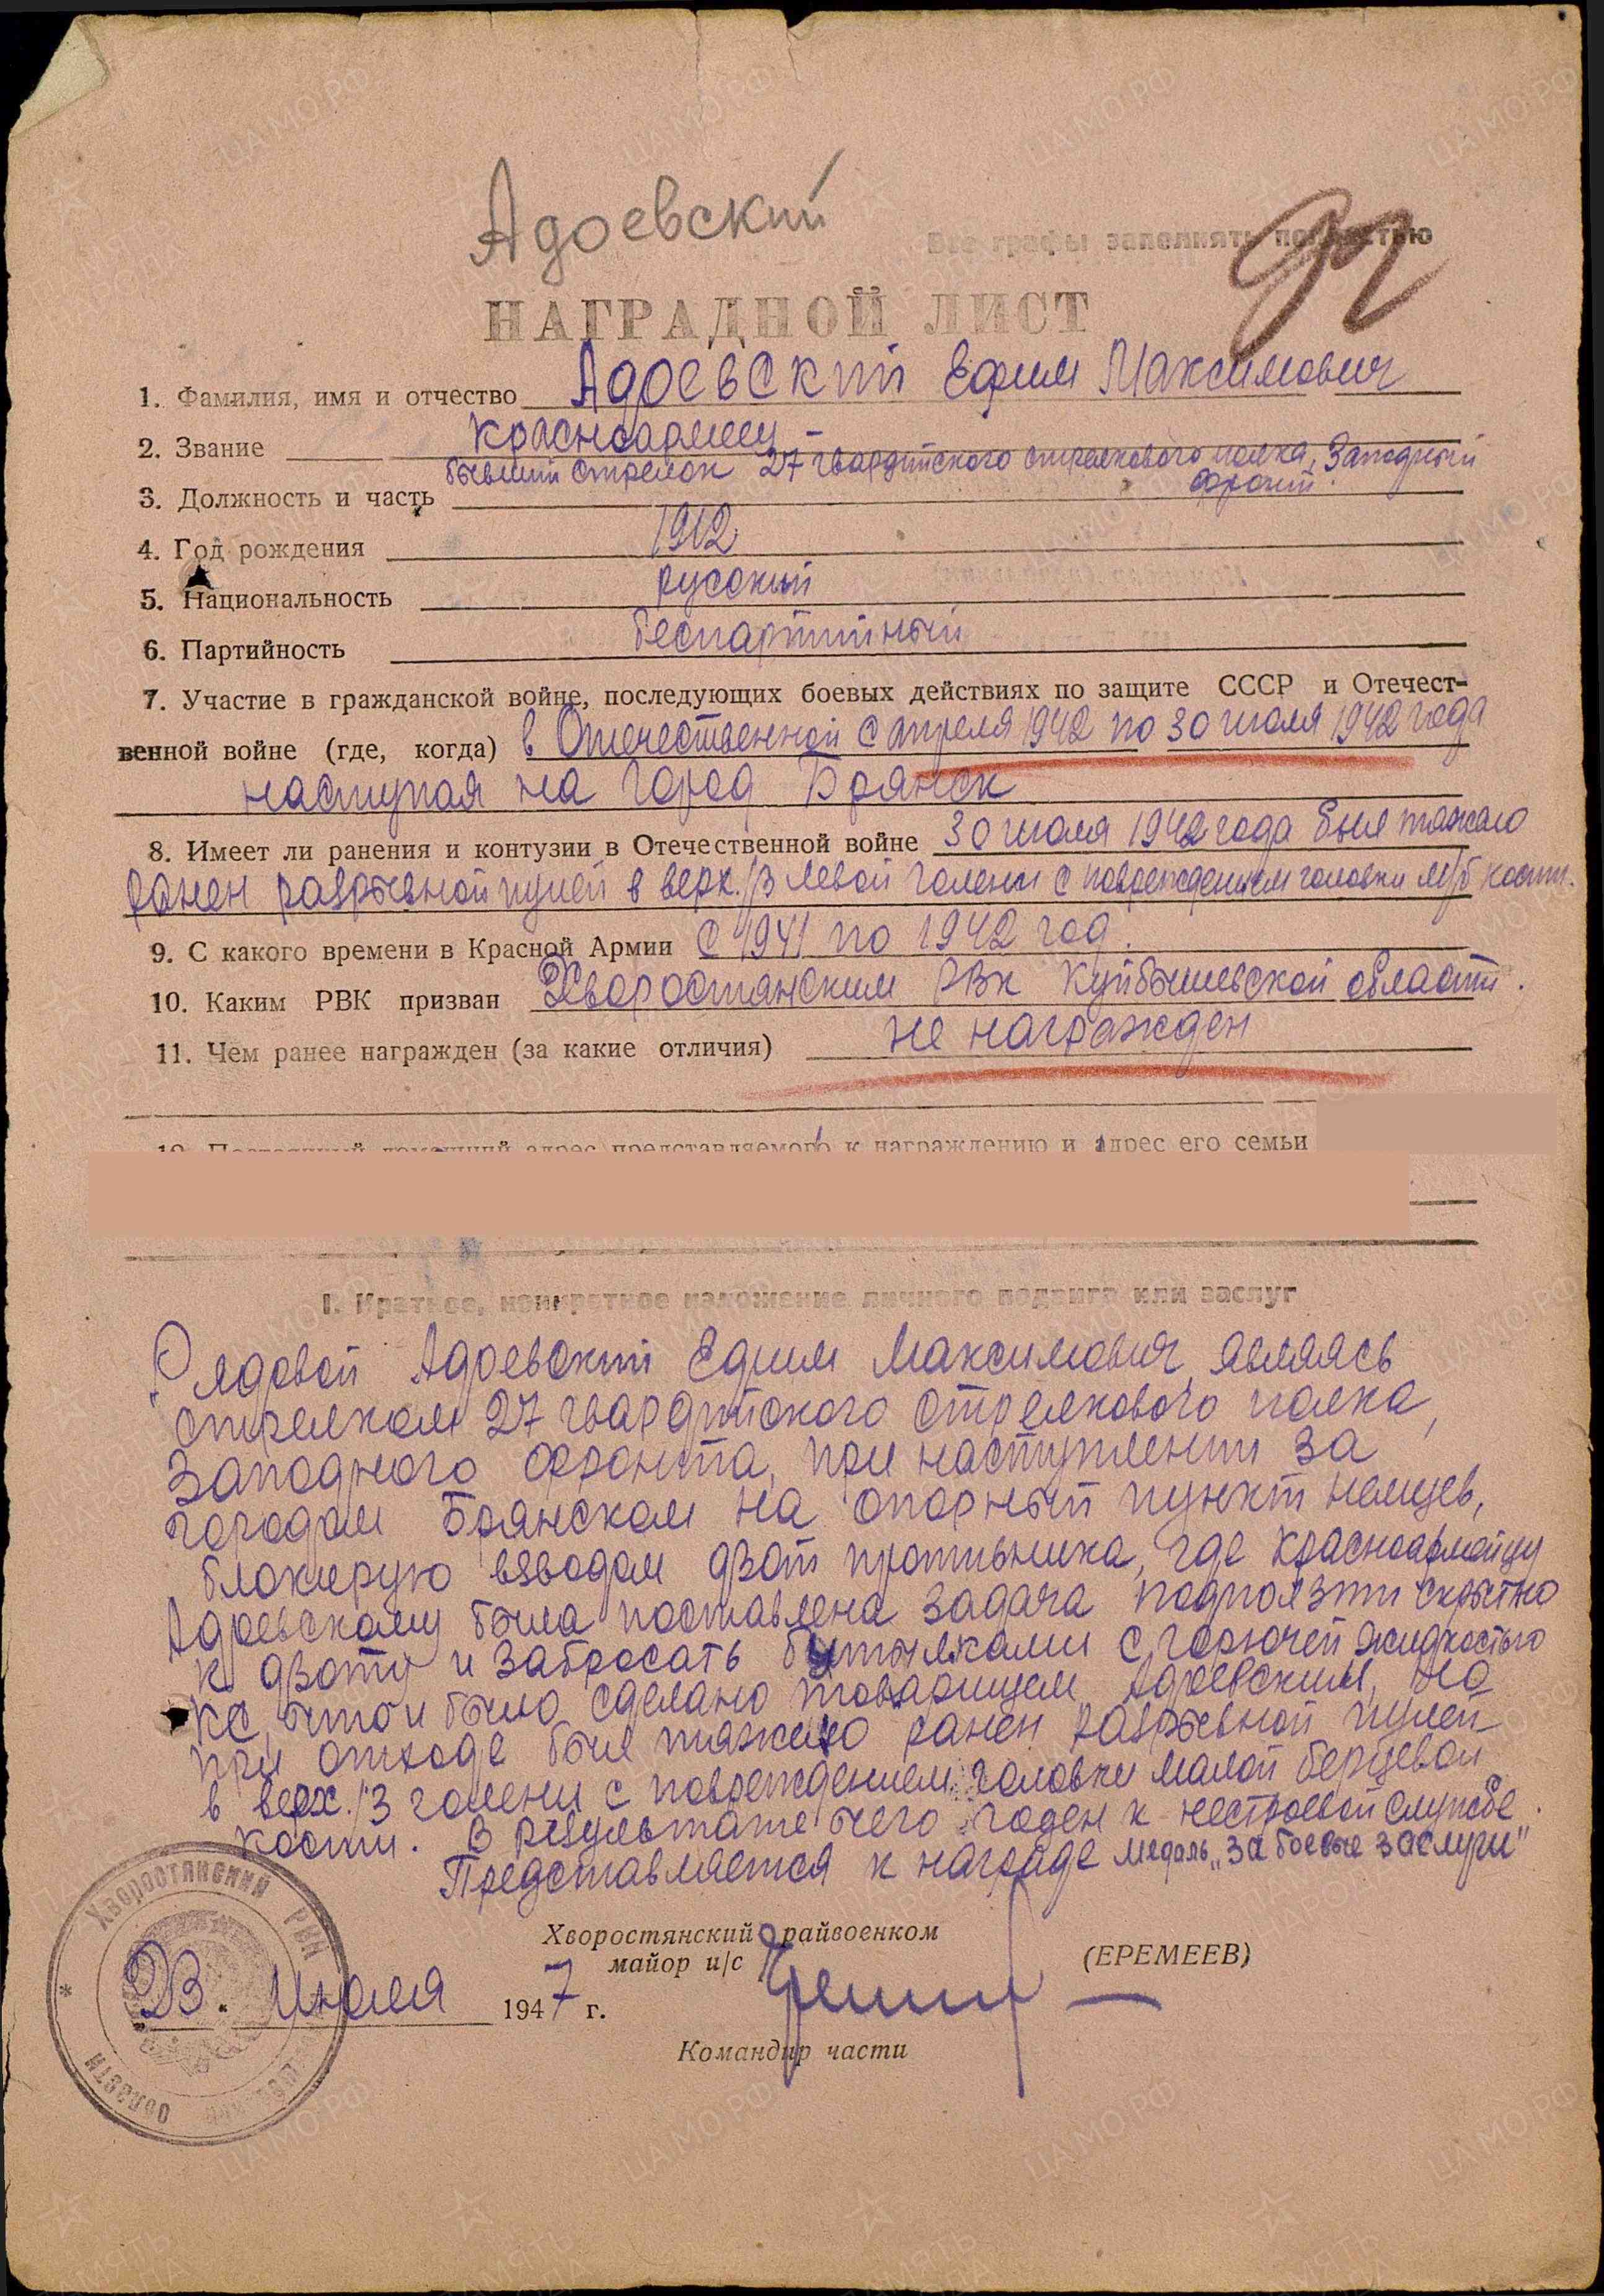 Адоевский
Все графы заполнять полностью
НАГРАДНОЙ ЛИСТ
1. Фамилия, имя и отчество Адоевский Ефим Максимович
2. Звание красноармеец
3. Должность и часть бывший стрелок 27 гвардийского стрелкового полка, Западный
фронт.
4. Год рождения 1912
5. Национальность русский
6. Партийность беспартийный
7. Участие в гражданской войне, последующих боевых действиях по защите СССР и Отечест-
венной войне (где, когда) в Отечественной с апреля 1942 по 30 июля 1942 года
наступая на город Брянск
8. Имеет ли ранения и контузии в Отечественной войне 30 июля 1942 года был тяжело
ранен разрывной пулей в верх./3 левой голени с повреждением головки м/б кости.
9. С какого времени в Красной Армии с 1941 по 1942 год.
10. Каким РВК призван Хворостянским РВК Куйбышевской области.
11. Чем ранее награжден (за какие отличия) не награжден
12. Постоянный домашний адрес представляемого к награждению и адрес его семьи
I. Краткое, конкретное изложение личного подвига или заслуг
Рядовой Адоевский Ефим Максимович, являясь
стрелком 27 гвардийского стрелкового полка,
Западного фронта, при наступлении за
городом Брянском на опорный пункт немцев,
блокирую взводом дзот противника, где красноармейцу
Адоевскому была поставлена задача подползти скрытно
к дзоту и забросать бутылками с горючей жидкостью
КС, что и было сделано товарищем Адоевским, но
при отходе был тяжело ранен разрывной пулей
в верх./3 голени с повреждением головки малой берцевой
кости. В результате чего годен к нестроевой службе.
Представляется к награде медаль „За боевые заслуги"
Хворостянский райвоенком
майор и/с (ЕРЕМЕЕВ)
„23. июля 1947 г.
Командир части
Хворостянский РВК
области